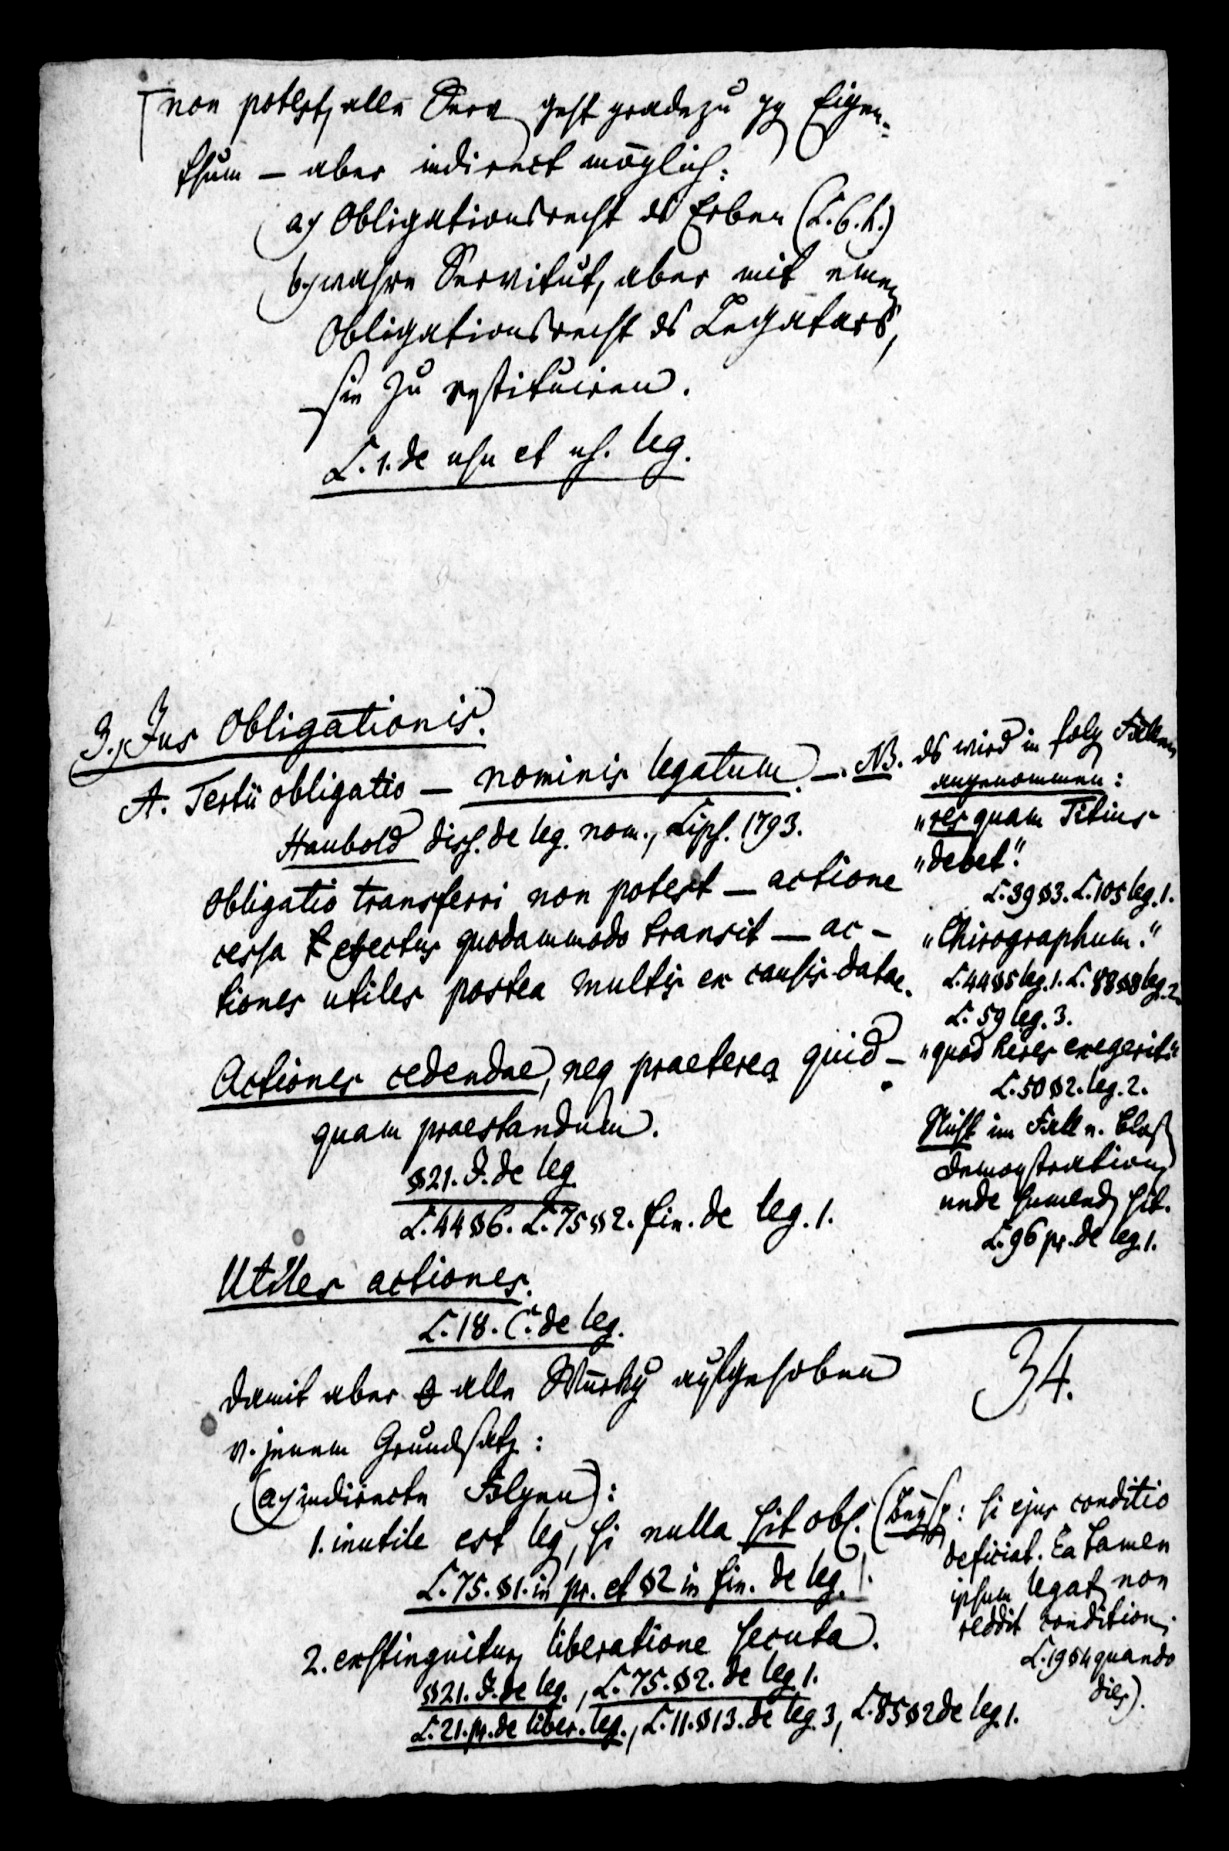 non potest, alle Serv geht gradezu gg Eigen-
thum — aber indirect möglich:
a) Obligationsrecht ds Erben (L. 6. h.)
b) wahre Servitut, aber mit einem
Obligationsrecht ds Legatars,
sie zu restituiren.
L. 1. de usu et us. leg.
3., Jus Obligationis.
A. Tertii obligatio — nominis legatum —.
Haubold diss. de leg. nom., Lips. 1793.
Obligatio transferri non potest — actione
cessa effectus quodammodo transit — ac-
tiones utiles postea multis ex causis datae.
Actiones cedendae, neq praeterea quid-
quam praestandum.
§21. J. de leg
L. 44 §6. L. 75 §2. fin. de leg. 1.
Utiles actiones.
L. 18. C. de leg.
Damit aber alle Würkg aufgehoben
v. jenem Grundsatz:
(a) indirecte Folgen):
1. inutile est leg, si nulla sit obl.
L. 75. §1. in pr. et §2 in fin. de leg. 1.
2. exstinguitur, liberatione secuta.
§21. J. de leg., L. 75. §2. de leg. 1.
L. 21. pr. de liber. leg., L. 11. §13. de leg. 3, L. 85 §2 de leg. 1.
NB. ds wird in folg Fällen
angenommen:
"res quam Titius
"debet".
L. 39 §3. L. 105 leg. 1.
"Chirographum."
L. 44 §5 leg. 1. L. 88 §8 leg. 2.
L. 59 leg. 3.
"quod heres exegerit"
L. 50 §2. leg. 2.
Nicht im Fall e. bloß
Demonstration,
unde sumend sit.
L. 96 pr. de leg. 1.
34.
(Beysp: si ejus conditio
deficiat. Ea tamen
ipsum legat non
reddit condition.
L. 19 §4 quando
dies).